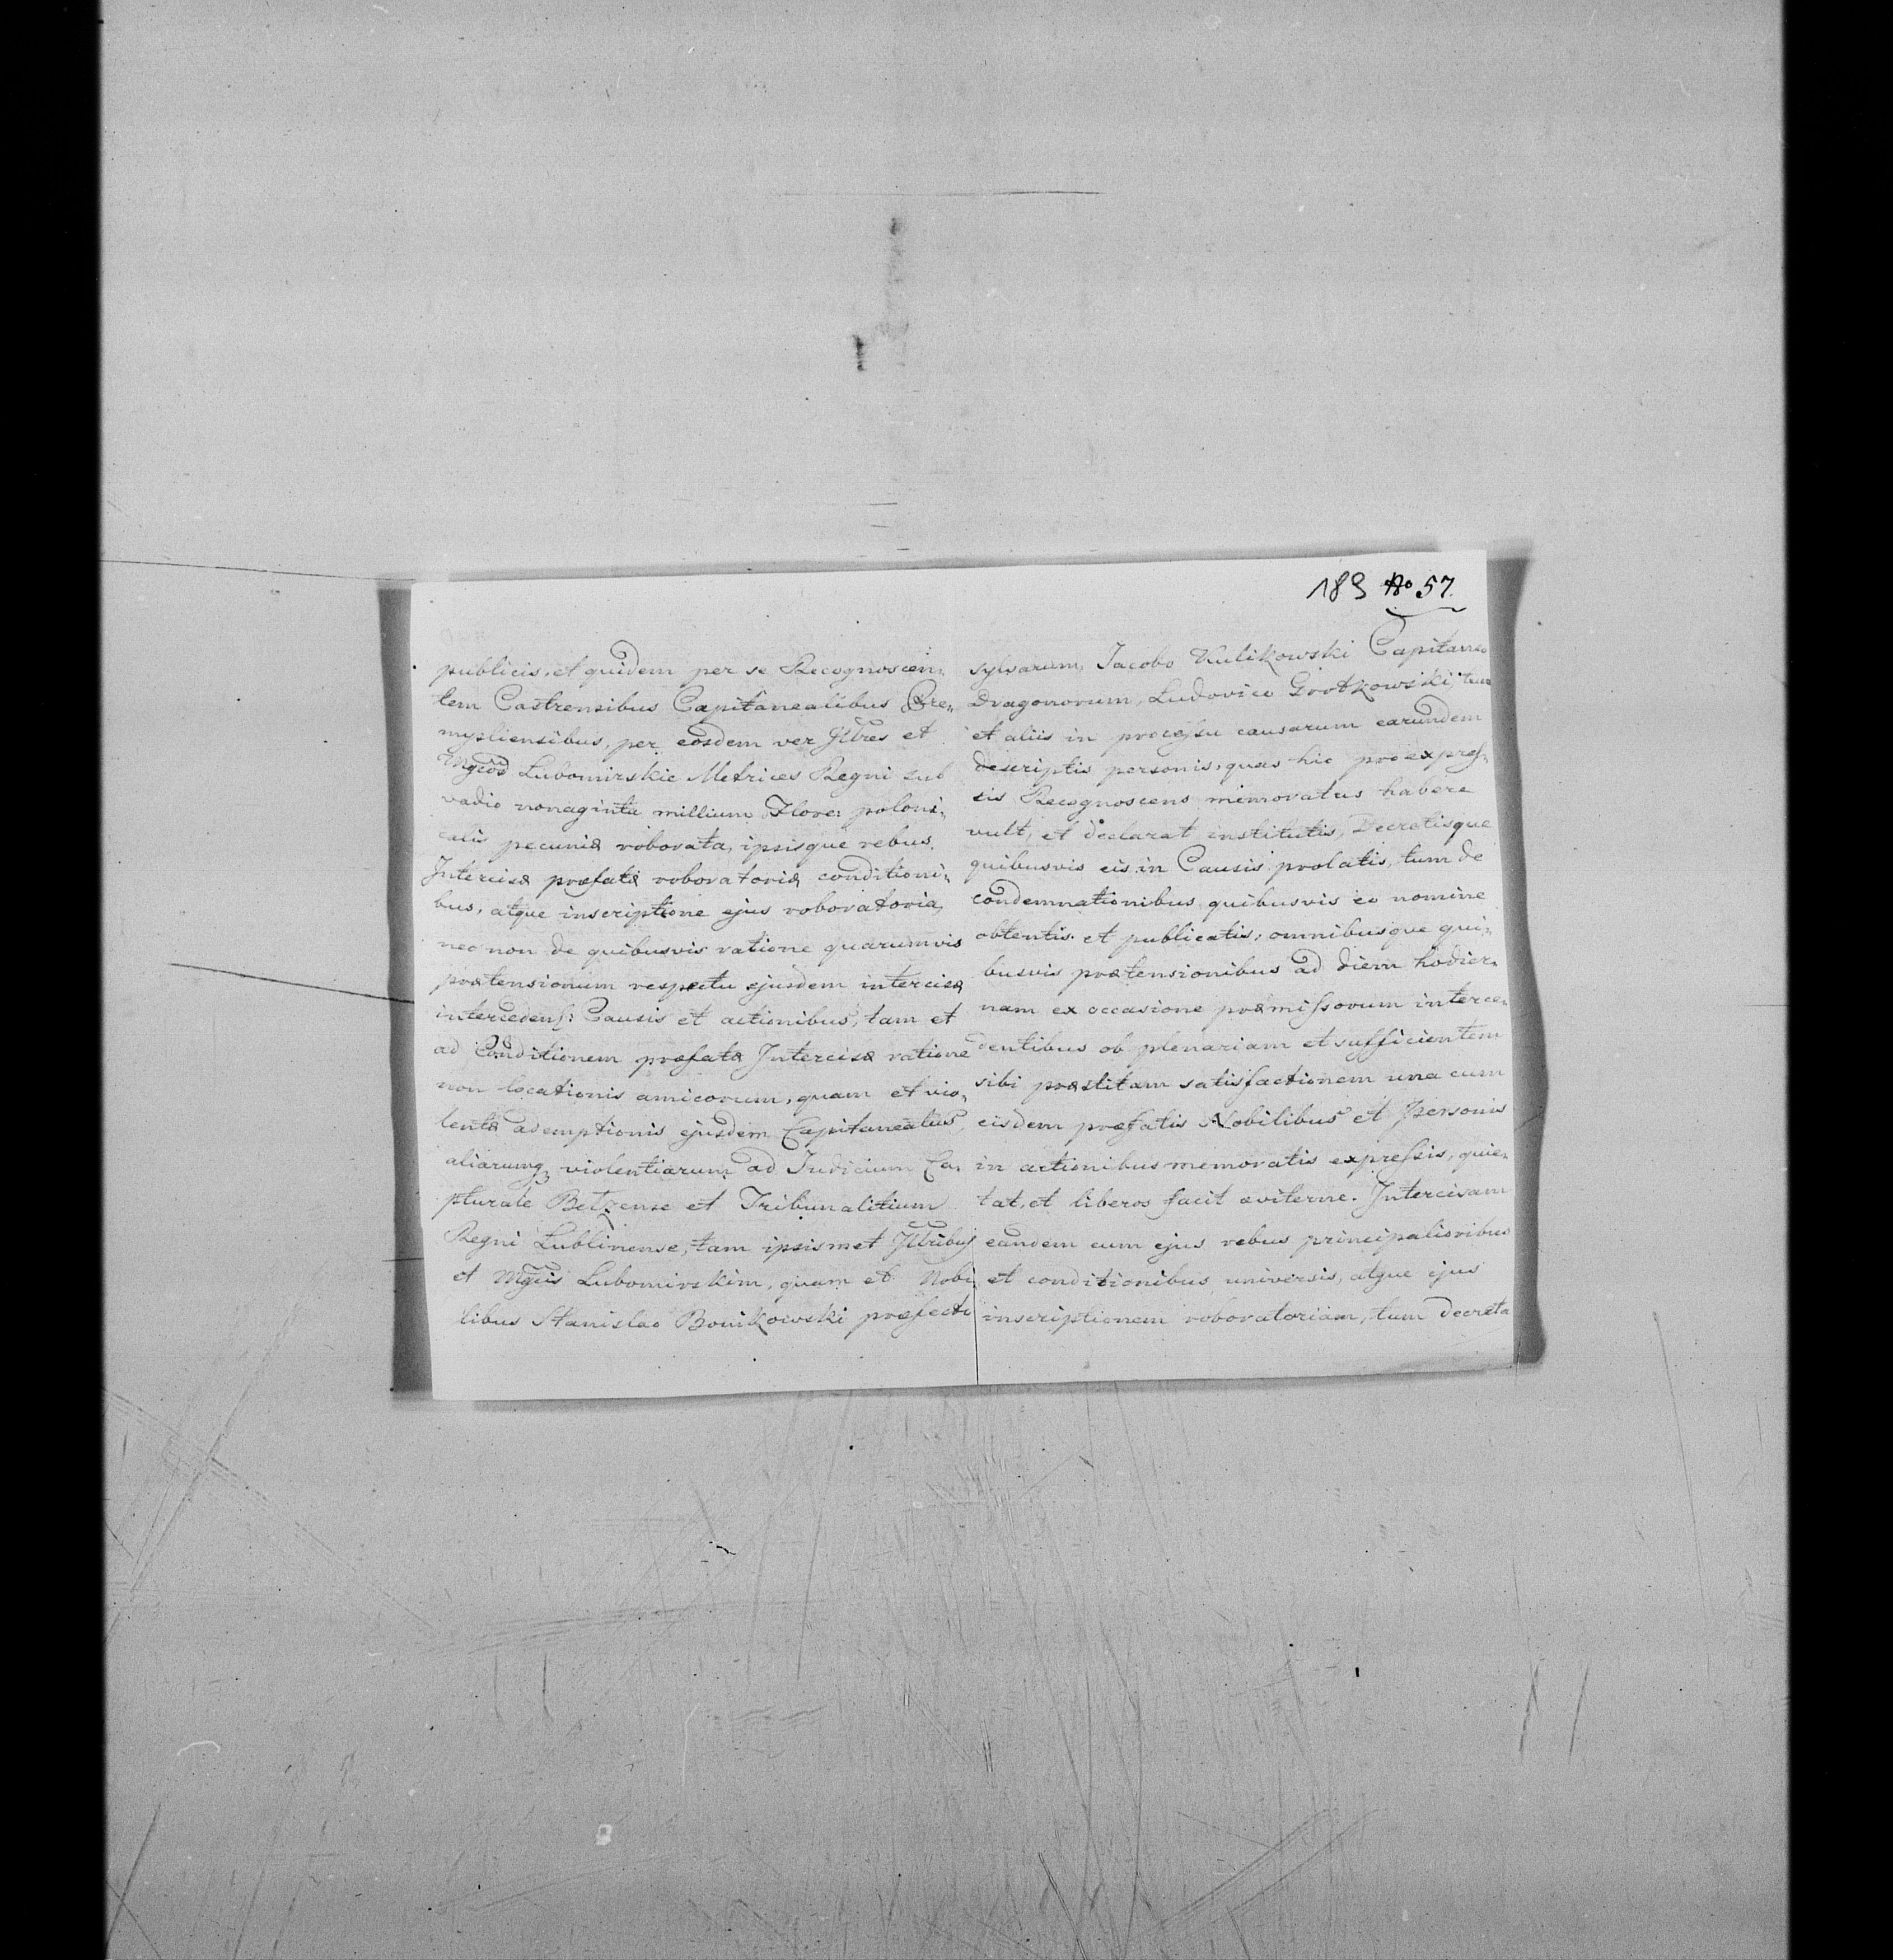 183 No 57.
publicis, et quidem per se Recognoscen:
tem Castrensibus Capitanealibus Pre:
mysliensibus, per eosdem ver Jllres et
Mgcos Lubomirskie Metrices Regni sub
vadio nonaginta millium Flore: poloni:
calis pecuniæ roborata, ipsisque rebus,
Intercisæ præfatæ roboratoriæ conditioni:
bus, atque inscriptione ejus roboratoria,
nec non de quibusvis ratione quarumvis
prætensionum respectu ejusdem intercisæ
intercedens: Causis et actionibus, tam et
ad Conditionem præfatæ Intercisæ ratione
non locationis amicorum, quam et vio:
lentæ ademptionis ejusdem Capitaneatus,
aliarumq, violentiarum ad Judicium Ca:
pturale Belzense et Tribunalitium
Regni Lublinense, tam ipsismet Jllribus
et Mgcis Lubomirskim, quam et Nobi
libus Stanislao Bonikowski præfecto
sylvarum, Jacobo Kulikowski Capitaneo
Dragonorum, Ludovico Grotkowski, tum
et aliis in processu causarum earundem
descriptis personis, quas hic pro expres:
sis Recognoscens memoratus habere
vult, et declarat institutis, Decretisque
quibusvis eis in Causis prolatis, tum de
condemnationibus quibusvis eo nomine
obtentis et publicatis, omnibusque qui:
busvis prætensionibus ad diem hodier:
nam ex occasione præmissorum interce:
dentibus ob plenariam et sufficientem
sibi præstitam satisfactionem una cum
eisdem præfatis Nobilibus et Personis
in actionibus memoratis expressis, quie:
tat, et liberos facit æviterne. Intercisam
eandem cum ejus rebus principalioribus
et conditionibus universis, atque ejus
inscriptionem roboratoriam, tum decreta